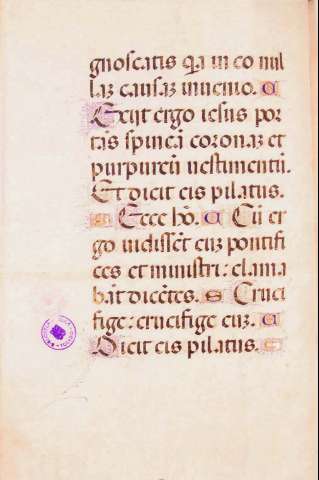 gnoscatis qꝛa in eo nul
laꝫ causaꝫ inuenio.
Exiit ergo iesus por
tãs spineã coronaꝫ et
purpureũ uestimentũ.
Et dicit eis pilatus.
Ecce hõ. Cũ er
go uidissẽt euꝫ pontifi
ces et ministri: clama
bãt dicẽtes. Cruci
fige: crucifige euꝫ.
Dicit eis pilatus.